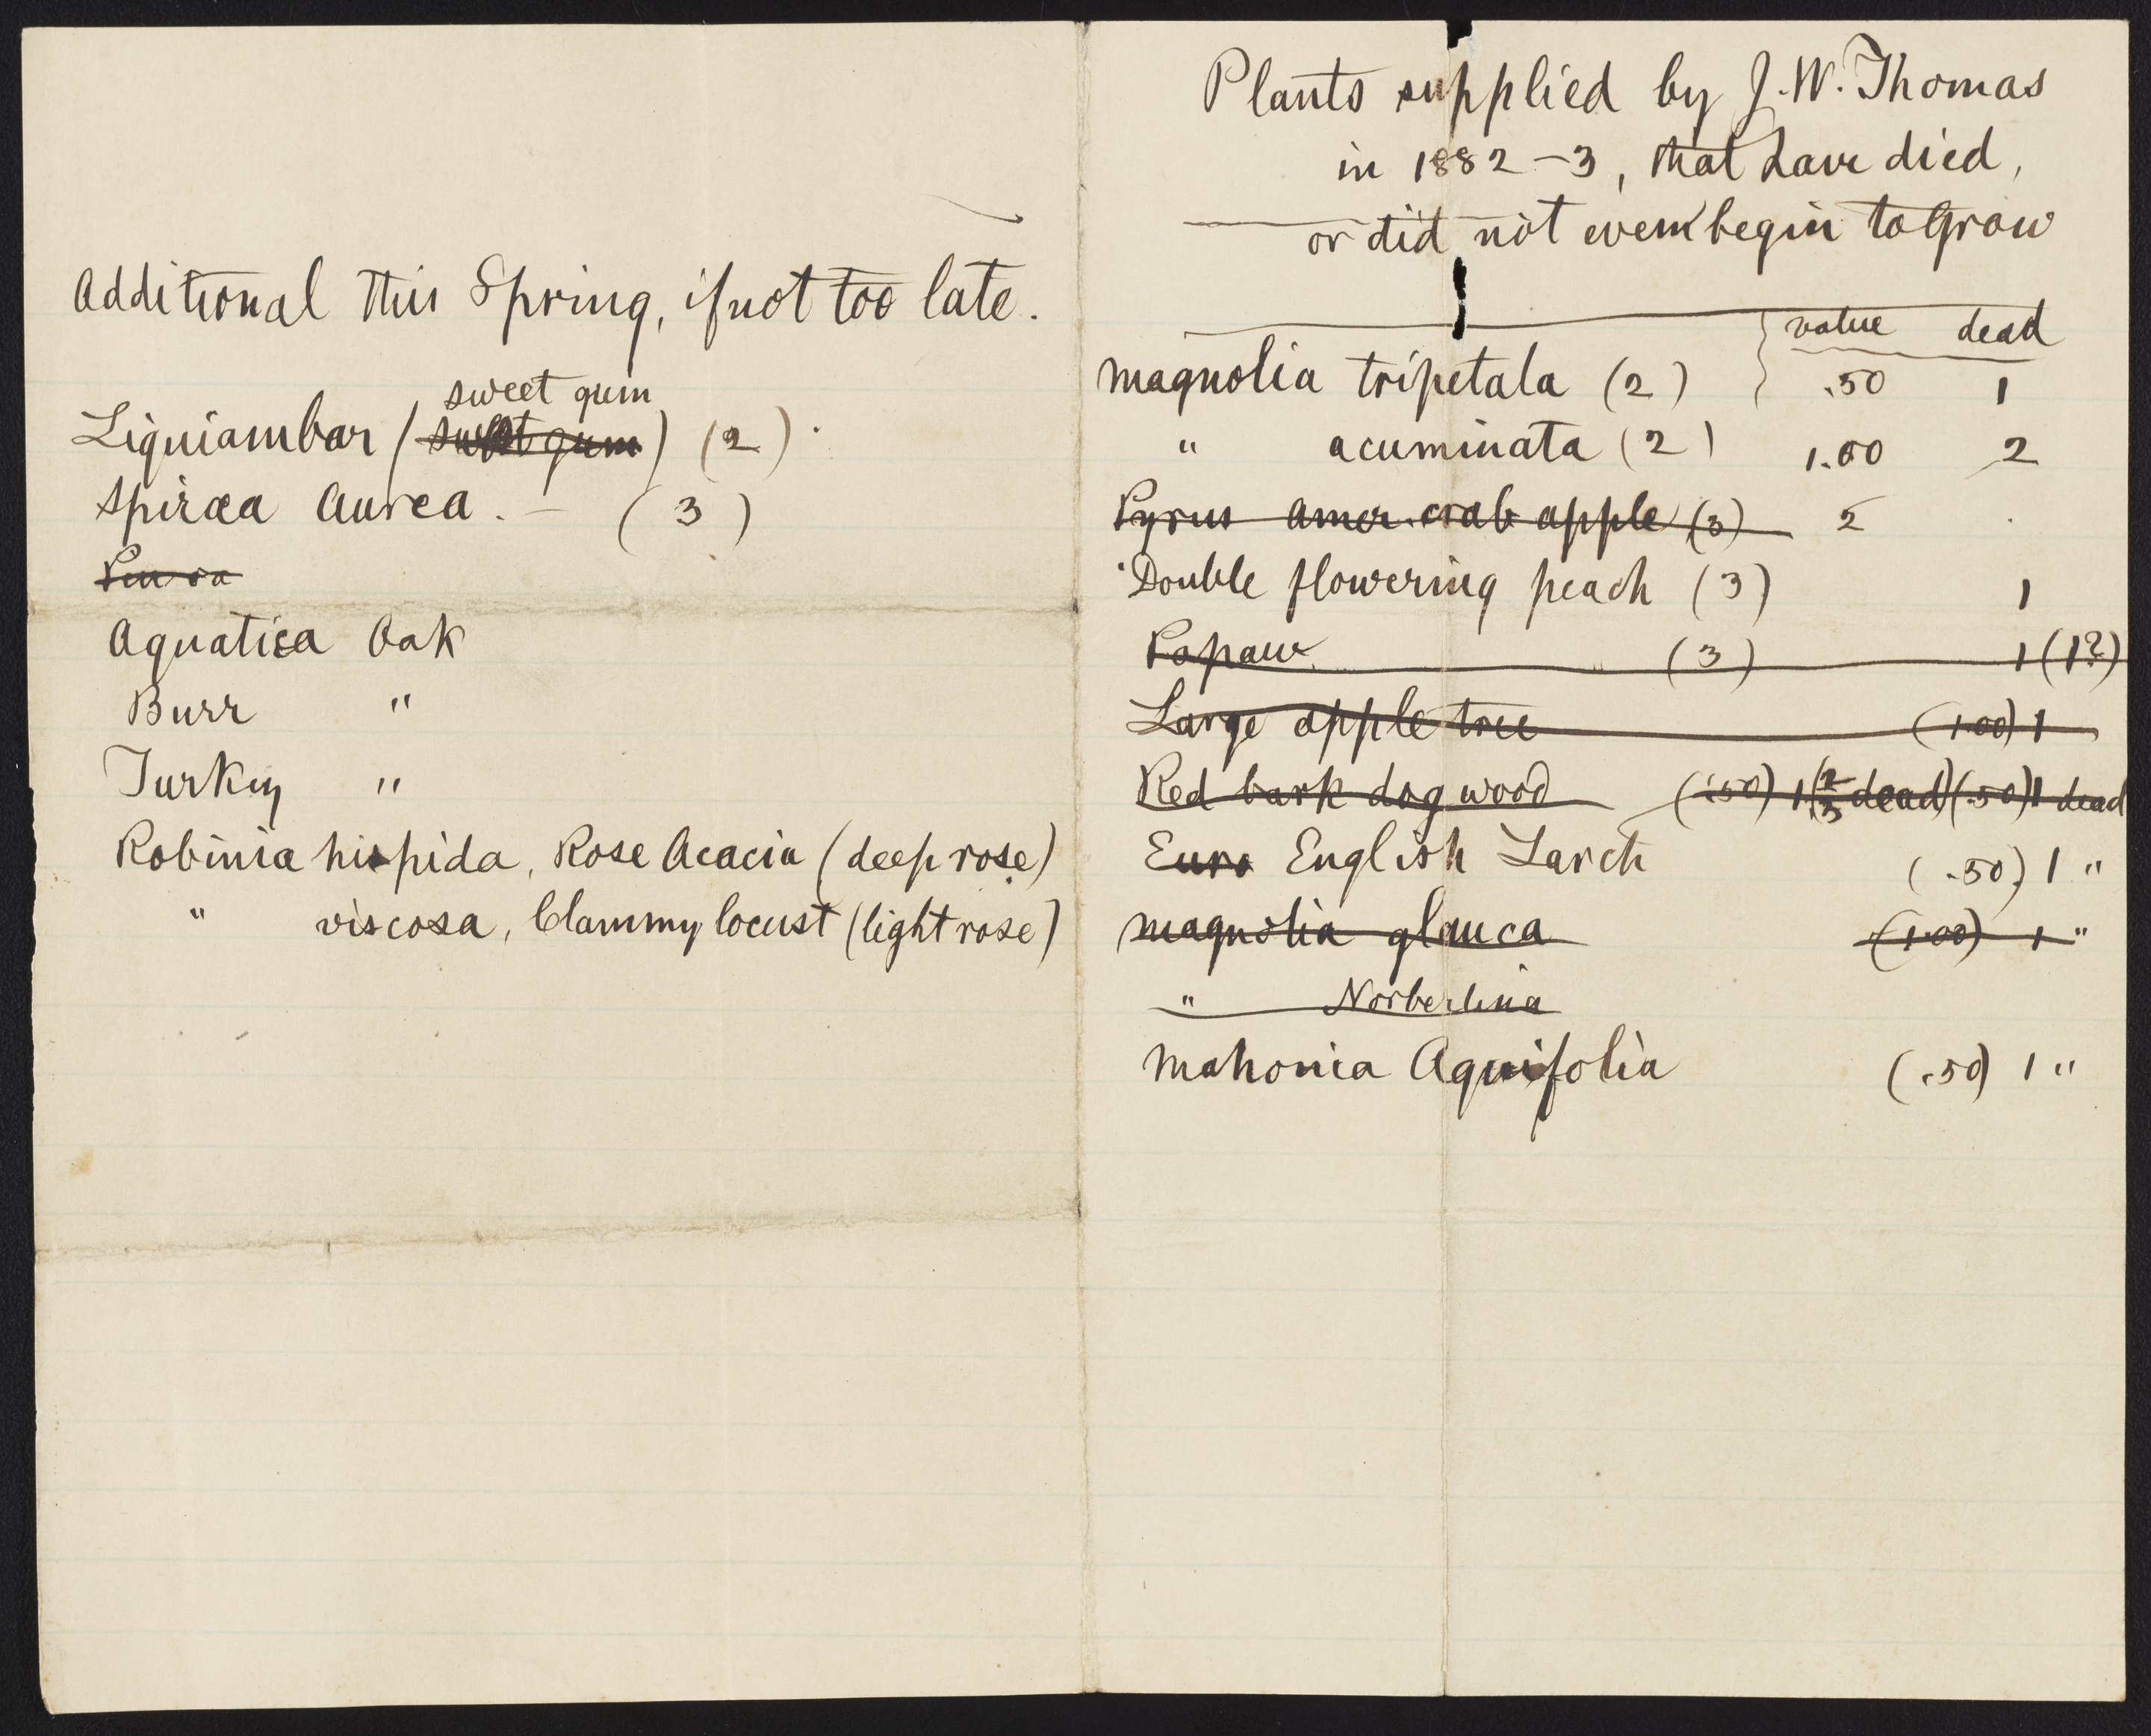 Additional this Spring, if not too late.
sweet gum
Liquiambar (sweet gum) (2)
Spiræa Aurea. - (3)
Aquatica Oak
Burr "
Turkey "
Robinia hispida, Rose Acacia (deep rose)
" viscosa, Clammy locust (light rose)
Plants supplied by J. W. Thomas
in 1882-3, that have died,
or did not even begin to Grow
value dead
Magnolia tripetala (2) .50 1
" acuminata (2) 1.00 2
Pyrus Amer. crab apple (3) 2
Double flowering peach (3) 1
Papaw (3) 1 (1?)
Large apple tree (1.00) 1
Red bark dogwood (.50) 1 (2/3 dead) (.50) 1 dead
Euro English Larch (.50) 1 "
Magnolia glauca (1.00) 1 "
" Norbertina
Mahonia Aquifolia (.50) 1 "